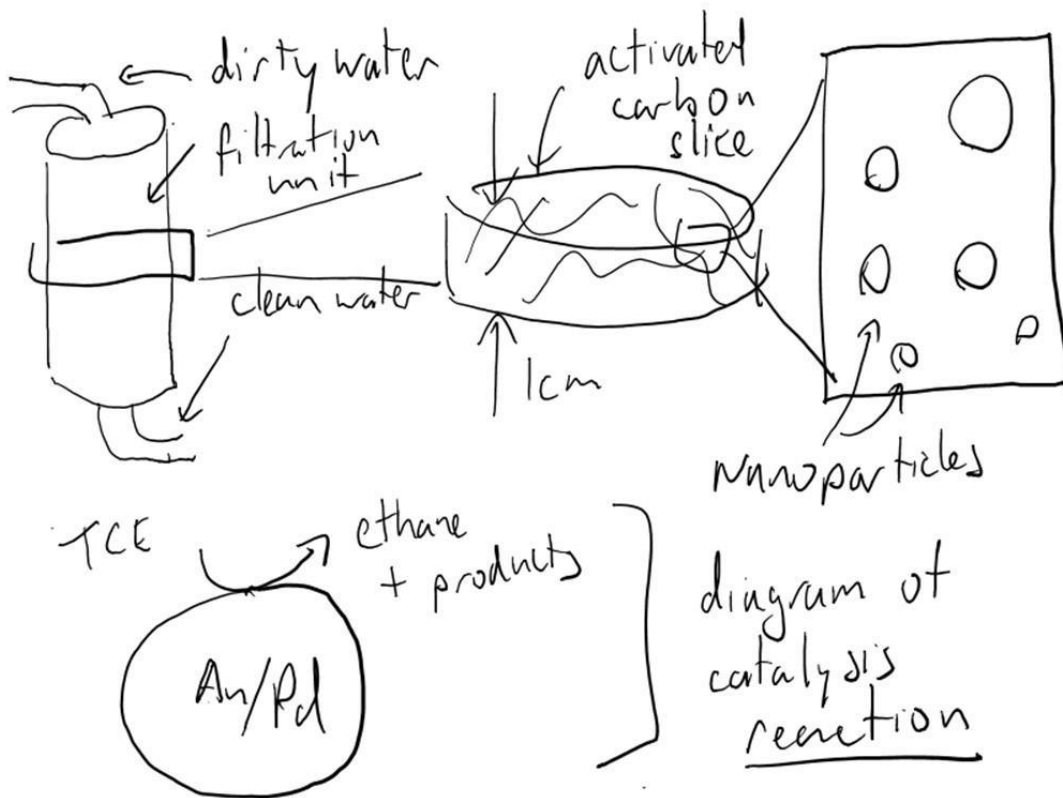 dirty water
filtration
unit
clean water
activated
carbon
slice
1cm
nanoparticles
TCE
ethane
+ products
Au/Pd
diagram of
catalysis
reaction